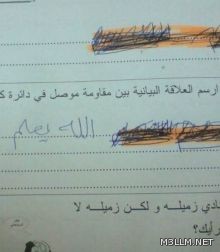 ارسم العلاقة البيانية بين مقاومة موصل في دائرة
الله يعلم
ذي زميله و لكن زميله لا
رأيك؟
M3LLM.NET